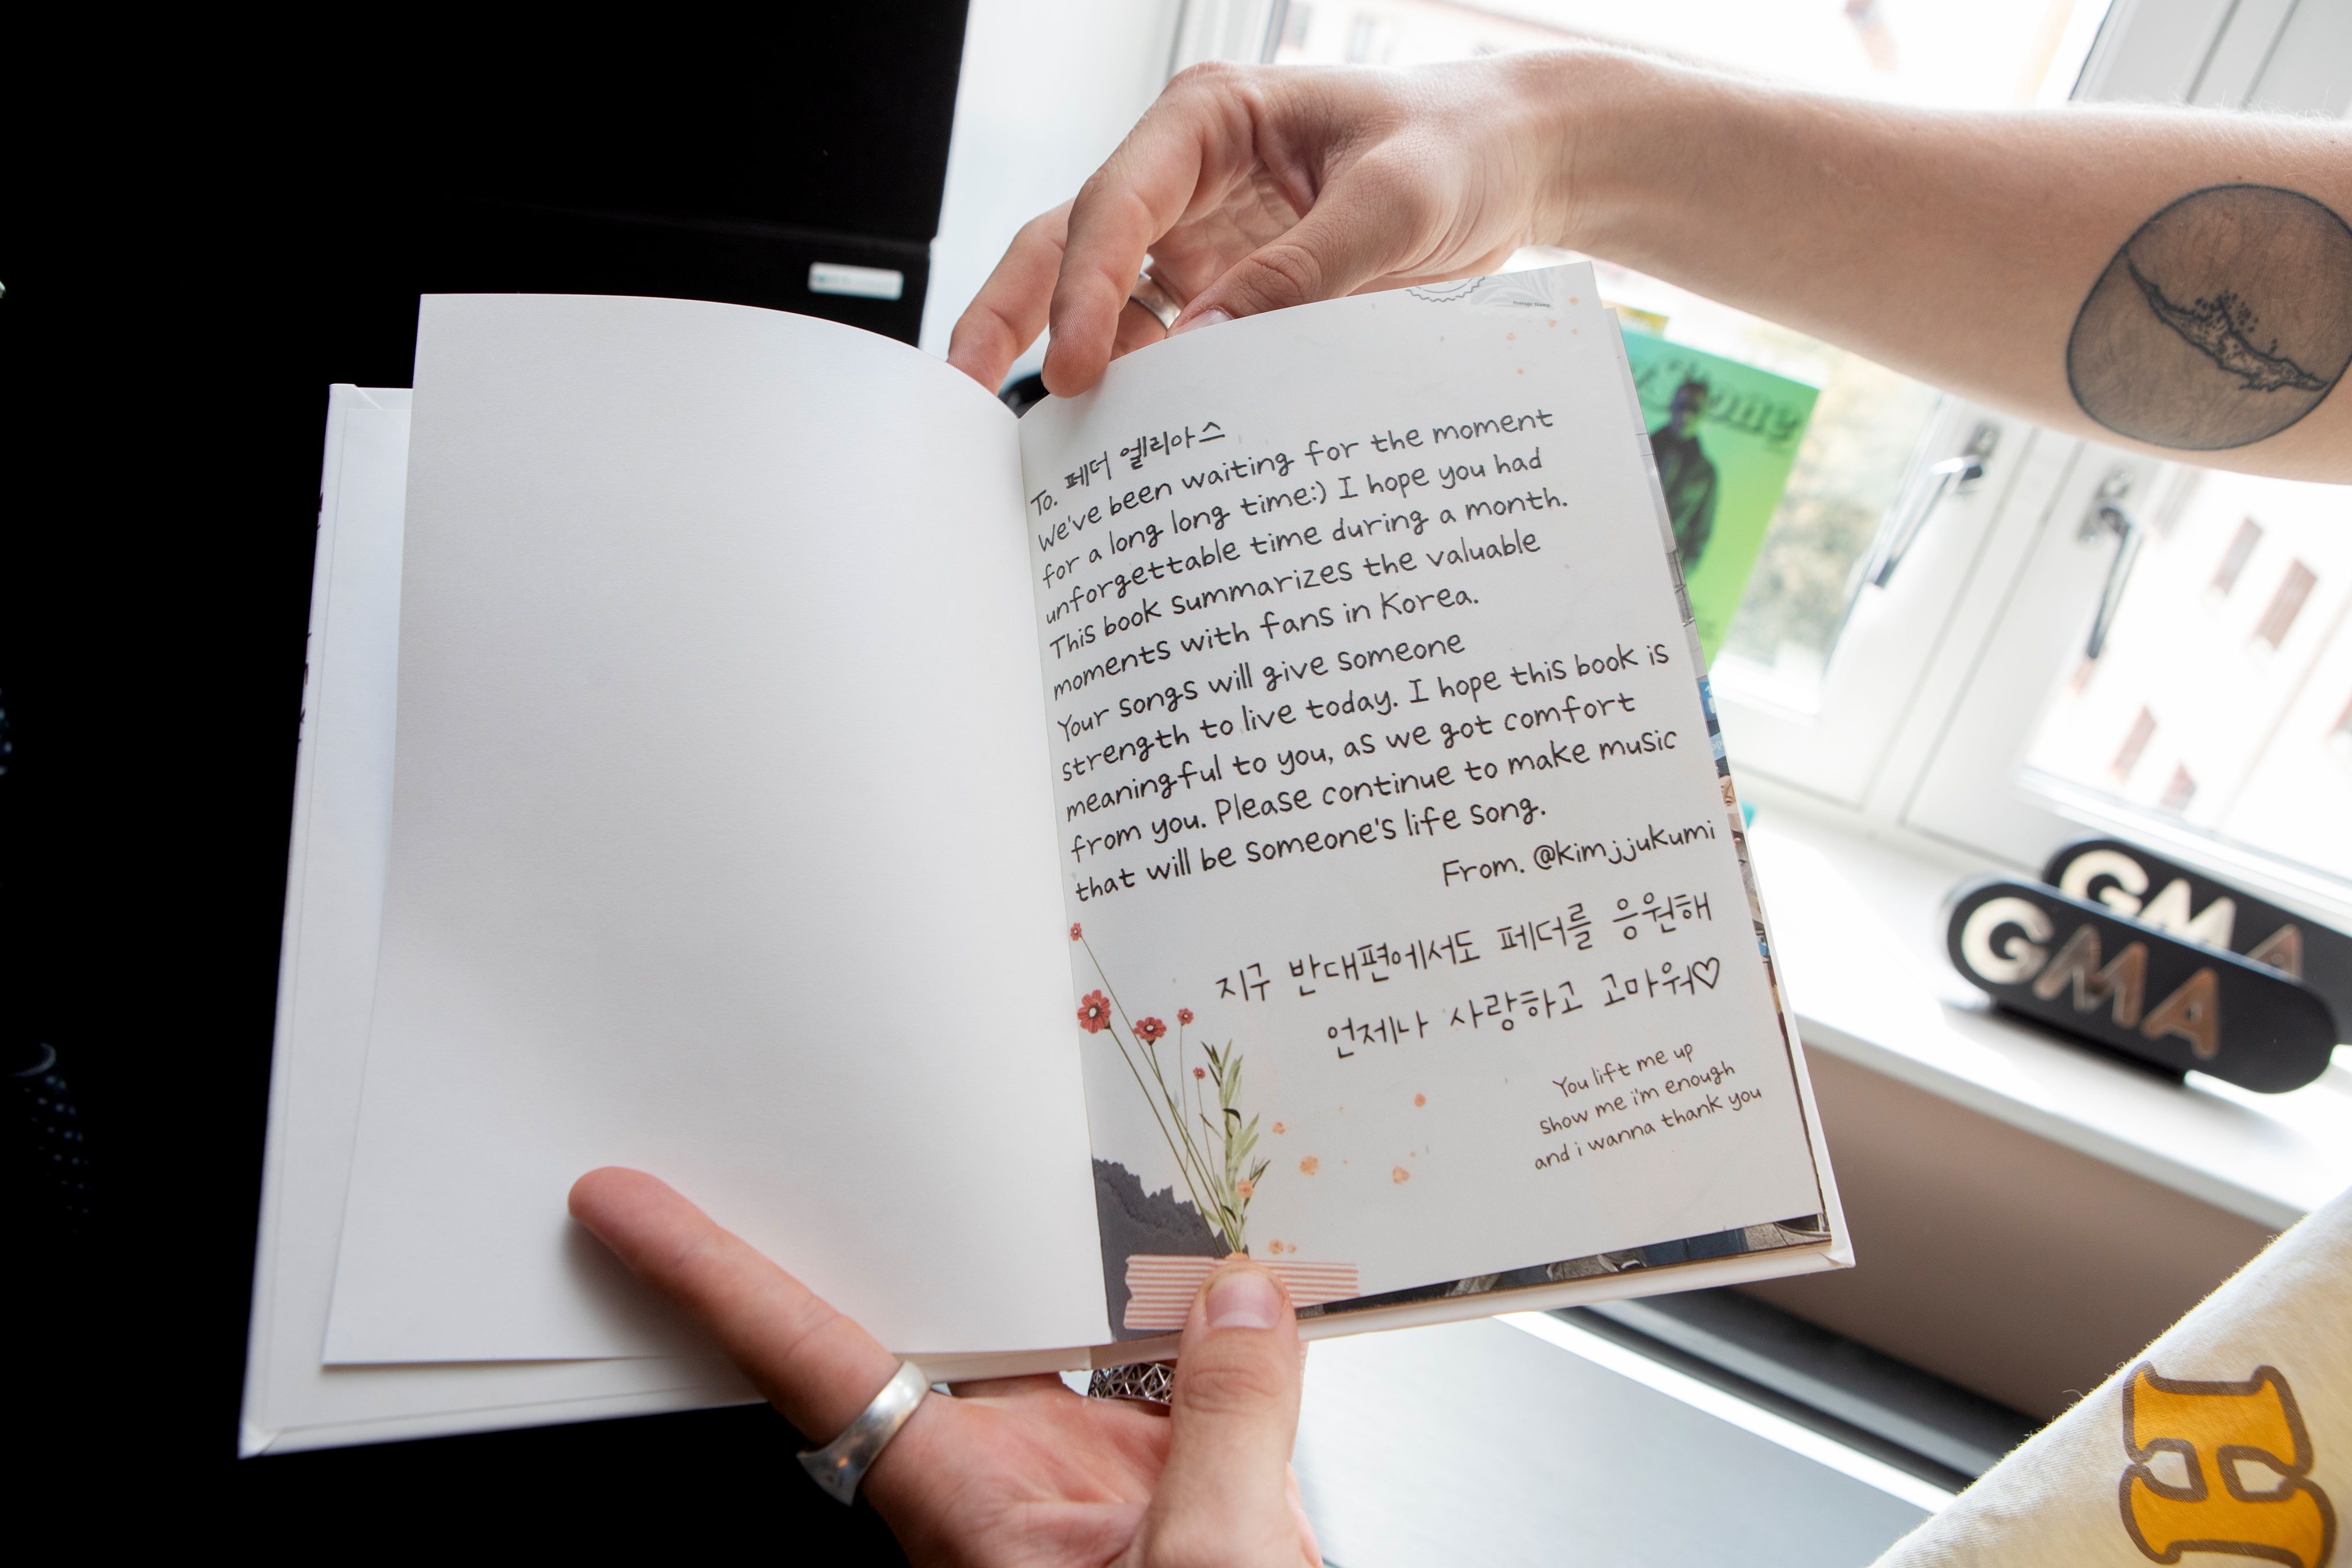 To. 페더 엘리아스
We've been waiting for the moment
for a long long time:) I hope you had
unforgettable time during a month.
This book summarizes the valuable
moments with fans in Korea.
Your songs will give someone
strength to live today. I hope this book is
meaningful to you, as we got comfort
from you. Please continue to make music
that will be someone's life song.
From. @kimjjukumi
지구 반대편에서도 페더를 응원해
언제나 사랑하고 고마워♡
You lift me up
show me i'm enough
and i wanna thank you
GMA
GMA